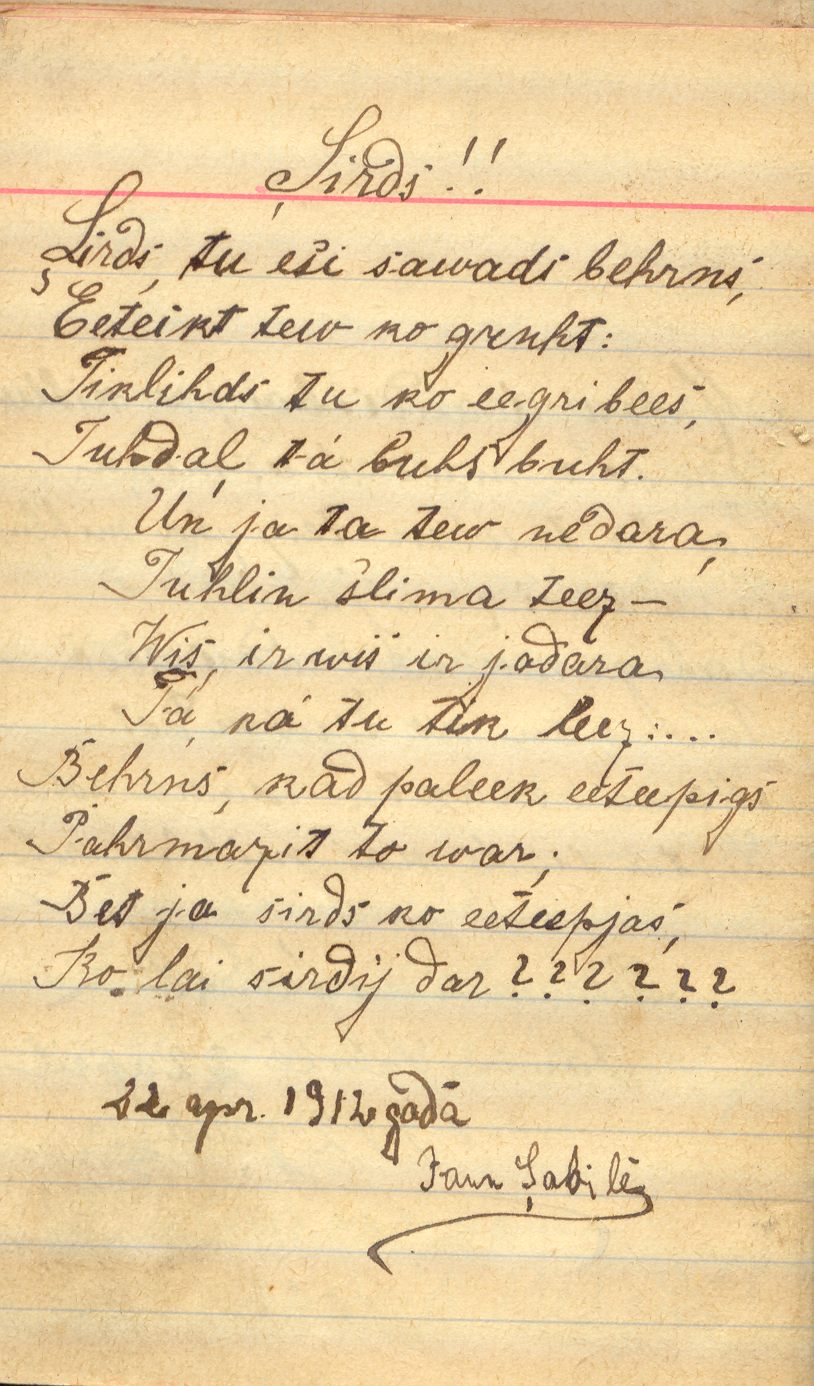 Sirds!!
Sirds, tu esi sawads behrns,
Eeteikt tew ko gruht:
Tiklihds tu ko eegribees,
Tuhdaļ tá buhs buht.
Un ja ta tew nedara,
Tuhlin slima teez —
Wis, ir wis ir jadara
Tá ká tu tik leez:....
Behrns, kad paleek eeteepigs
Pahrmazit to war;
Bet ja sirds ko eeteepjas,
Ko lai sirdij dar ??????
22 apr. 1912 gadā
Jaun Sabilē